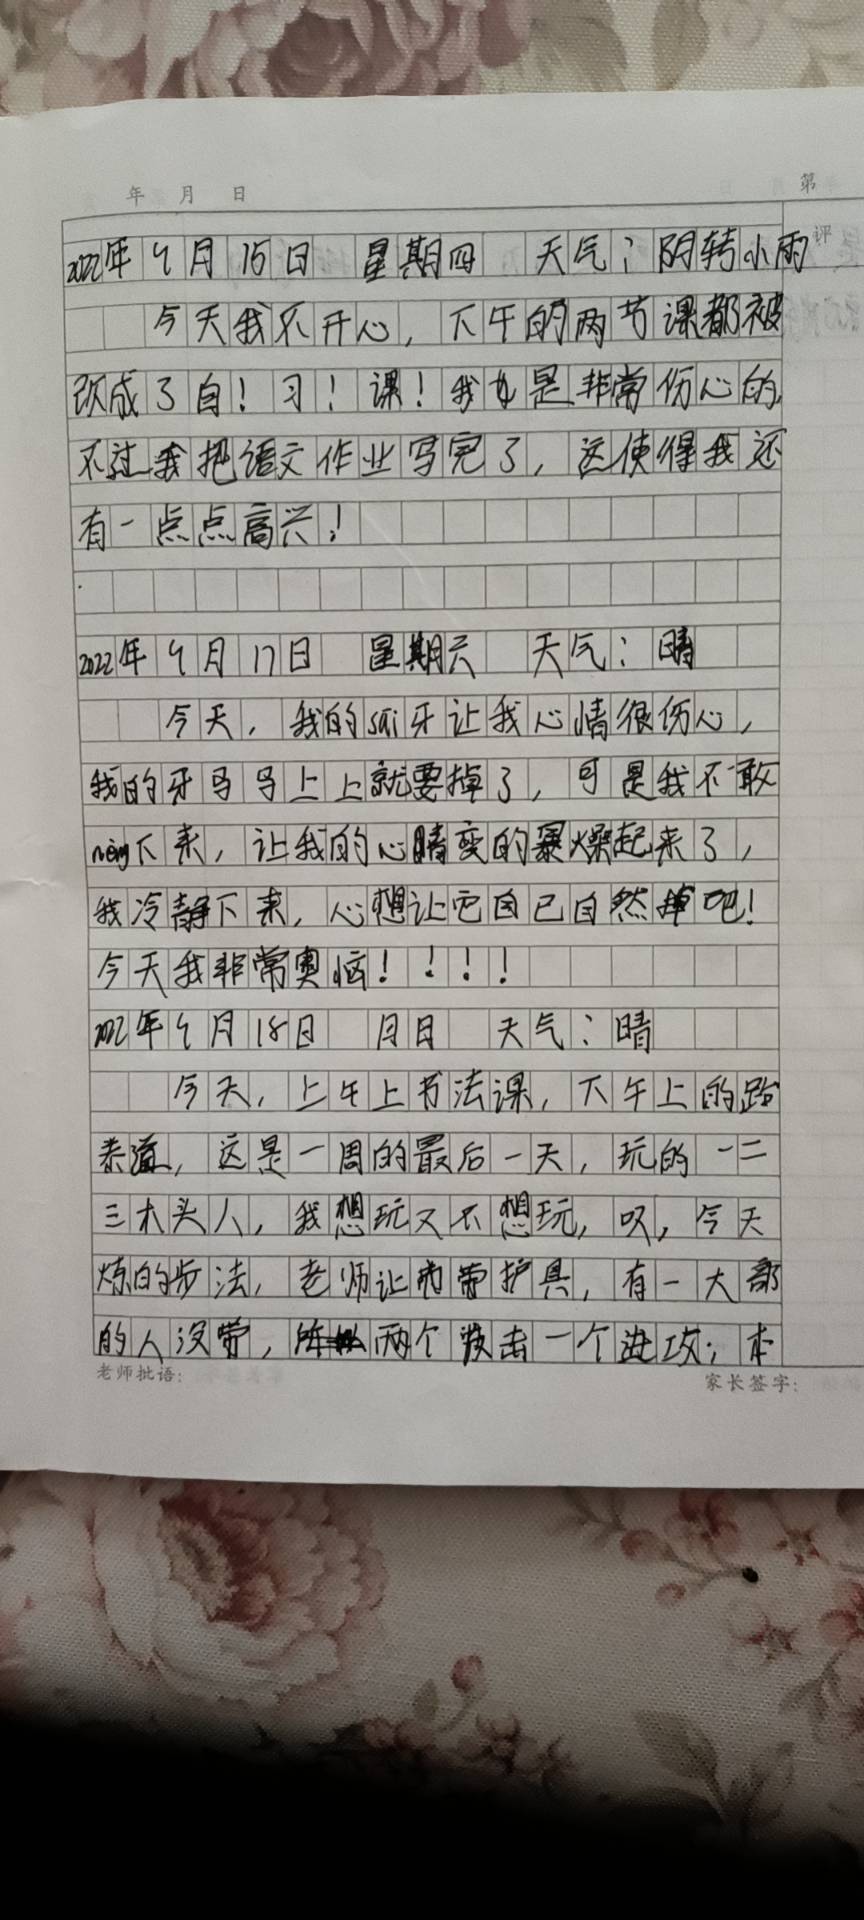 年 月 日
第
评
2022年9月15日 星期四 天气：阴转小雨
今天我不开心，下午的两节课都被
改成了自！习！课！我是非常伤心的，
不过我把语文作业写完了，这使得我还
有一点点高兴！
2022年9月17日 星期六 天气：晴
今天，我的sai牙让我心情很伤心，
我的牙马马上上就要掉了，可是我不敢
neng下来，让我的心晴变的暴燥起来了，
我冷静下来，心想让它自己自然掉吧！
今天我非常奥恼！！！！
2022年9月18日 月日 天气：晴
今天，上午上书法课，下午上的跆
泰道，这是一周的最后一天，玩的一二
三木头人，我想玩又不想玩，叹，今天
炼的步法，老师让带护具，有一大部
的人没带，两个攻击一个进攻；本
老师批语：
家长签字：